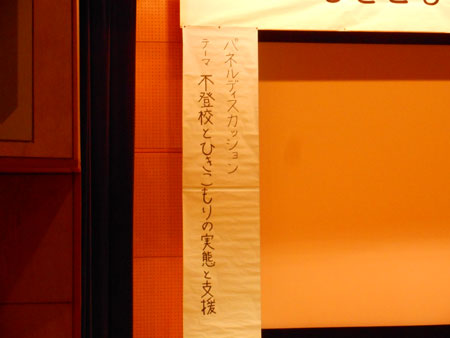 パネルディスカッション
テーマ 不登校とひきこもりの実態と支援